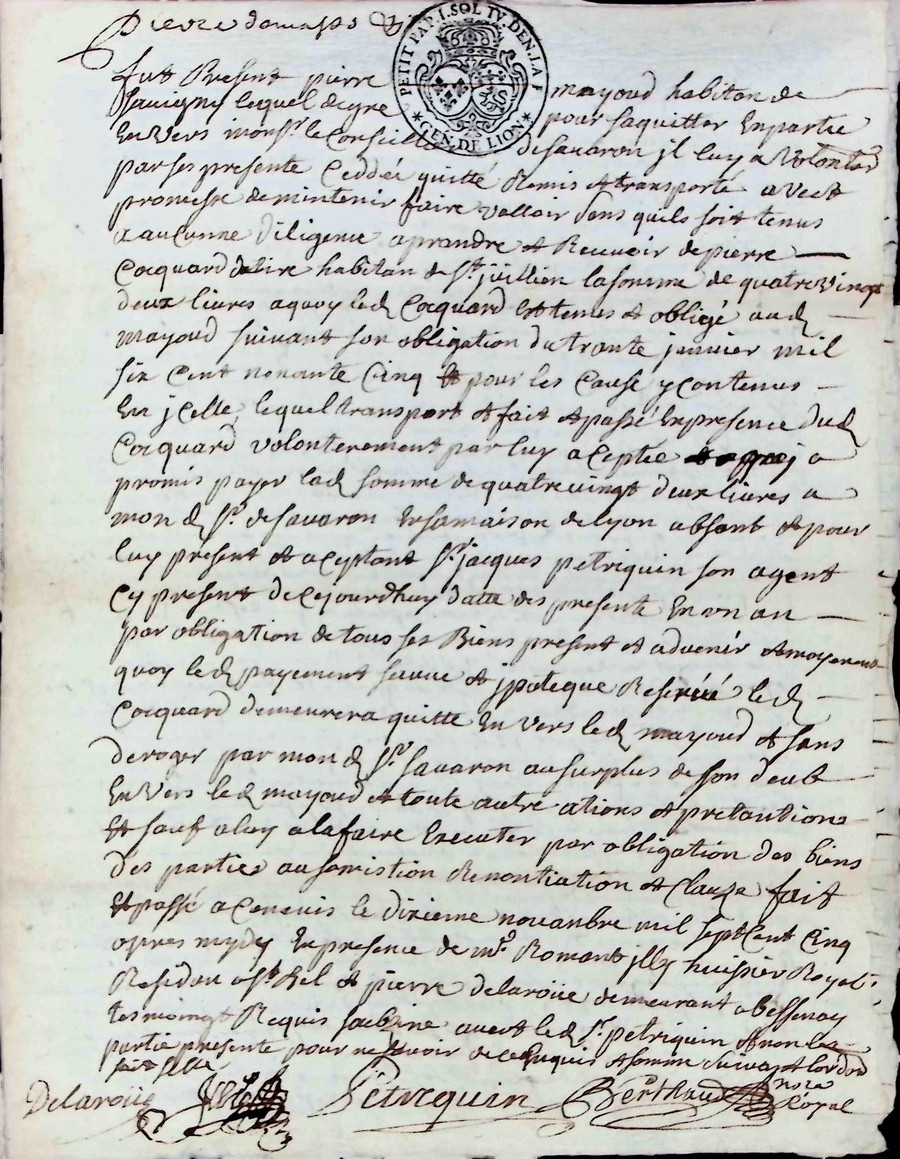 Pierre
PETIT PAP. 1. SOL TV. DEN. LA F
GEN. DE LION
fut Present pierre mayoud habitan de
Savigny lequel de gre pour saquitter En partie
En Vers monsr. le Conseille de Savaron jl luy a Volonter
par ses presente Ceddée quitté Remis et transporté avect
promesse de mintenir faire valloir sens quils soit tenus
a auCunne diligence a prandre et Recevoir de pierre
Cocquard habitan de St. jullien la somme de quatrevingt
deux livres a quoy led Cocquard Est tenus et obligé aud
mayoud suivant son obligation du trante janvier mil
six Cent nonante Cinq pour les Cause y contenus
En jcelle lequel transport et fait et passé En presence dud
Cocquard volonterement par luy acepté a
promis payer lad somme de quatrevingt deux livres a
mon d Sr. de Savaron En sa maison de lyon absant et pour
luy present et aceptant Sr. jacques petriquin son agent
Cy present de Cejourdhuy datte des presente En un an
par obligation de tous ses Biens present et advenir et moyenent
quoy led payement sauve et jpoteque Reservée led
Cocquard demeurera quitte En Vers led mayoud et sans
deroger par mon d Sr. Savaron au surplus de son deub
En Vers led mayoud et toute autre ations et pretantions
Et sauf a luy a la faire Executer par obligation des biens
des parties au somistion Renontiation et Clauze fait
Et passé a Cenevis le dixieme novanbre mil sept Cent Cinq
apres mydy En presence de me. Romant jlly huissier Royal
Residan a St. Bel et pierre delaroüe demeurant a bessenay
tesmoingt Requis avect led Sr. petriquin et non les
partie presente pour ne savoir de ce Enquis et somme suivant lordon
Delaroüe Petriquin Berthaud nore
Royal